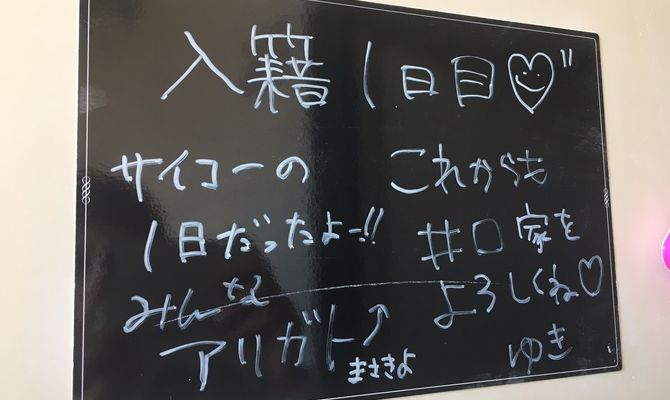 入籍1日目♡"
サイコーの
1日だったよー!!
みんな
アリガト↗
まさきよ
これからも
井口家を
よろしくね♡
ゆき